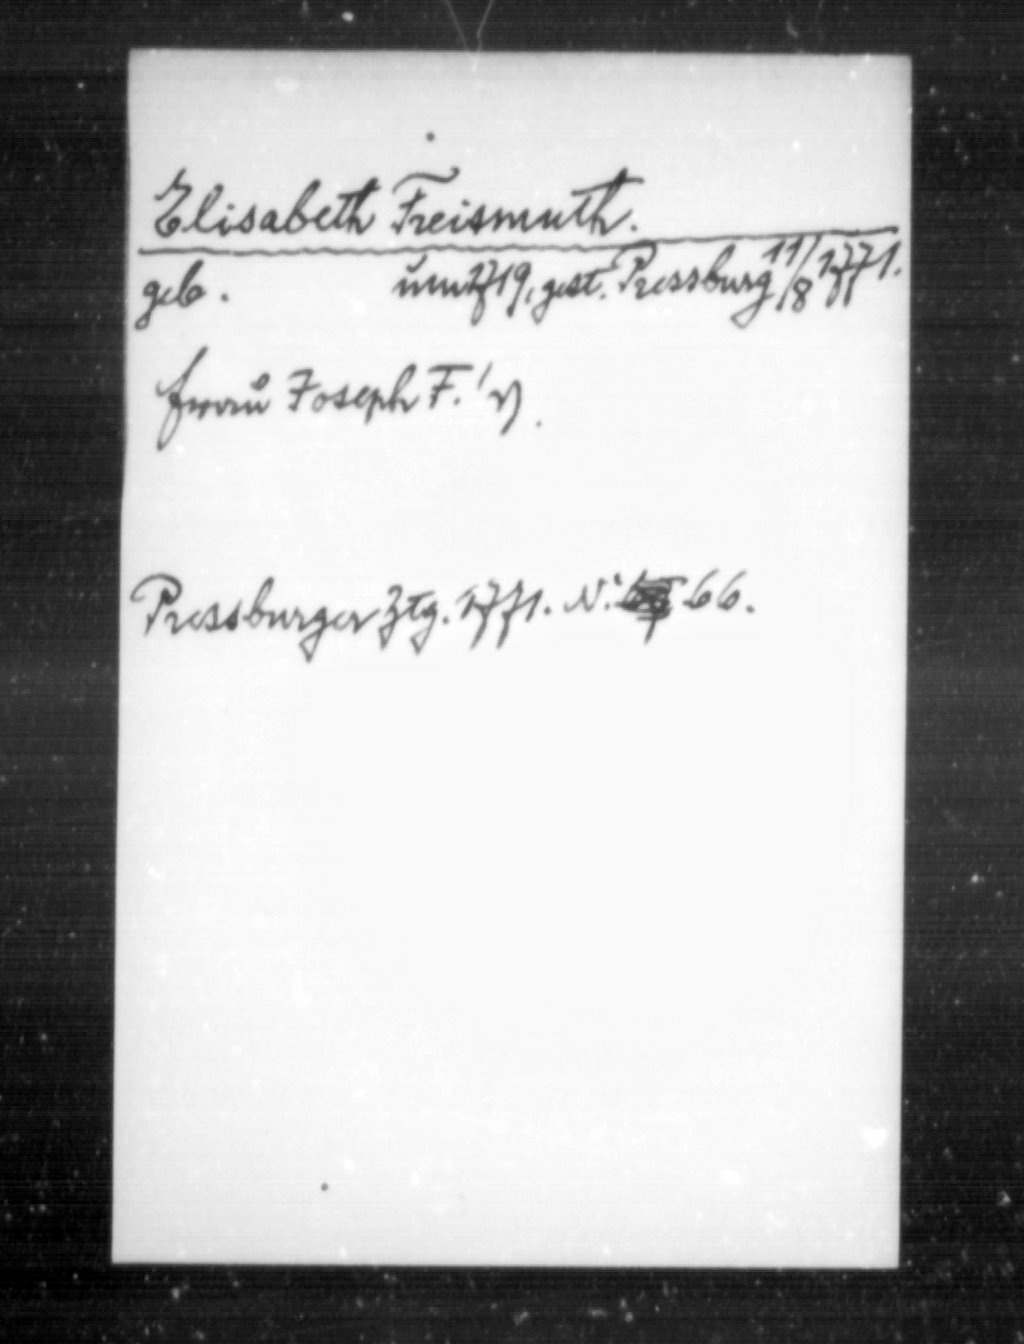 Elisabeth Freismuth.
geb. um 1719, gest. Pressburg 11/8 1771.
Frau Joseph F.'
Pressburger Ztg. 1771. N. 66.